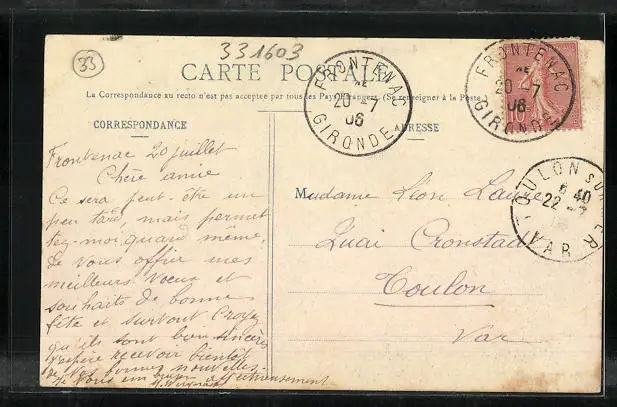 33
331603
CARTE POSTALE
La Correspondance au recto n'est pas acceptée par tous les Pays Etrangers. (Se renseigner à la Poste)
CORRESPONDANCE
ADRESSE
FRONTENAC
20 -7
06
GIRONDE
FRONTENAC
20 -7
06
GIRONDE
TOULON SUR MER
6 40
22 -7
VAR
Frontenac 20 juillet
Chère amie
Ce sera peut-être un
peu tard, mais permet
tez-moi quand même
de vous offrir mes
meilleurs voeux et
souhaits de bonne
fête et surtout Croyez
qu'ils sont bien sincères
J'espère recevoir bientôt
de vos bonnes nouvelles.
Je vous affectueusement
Madame Léon Laure
Quai Cronstadt
Toulon
Var